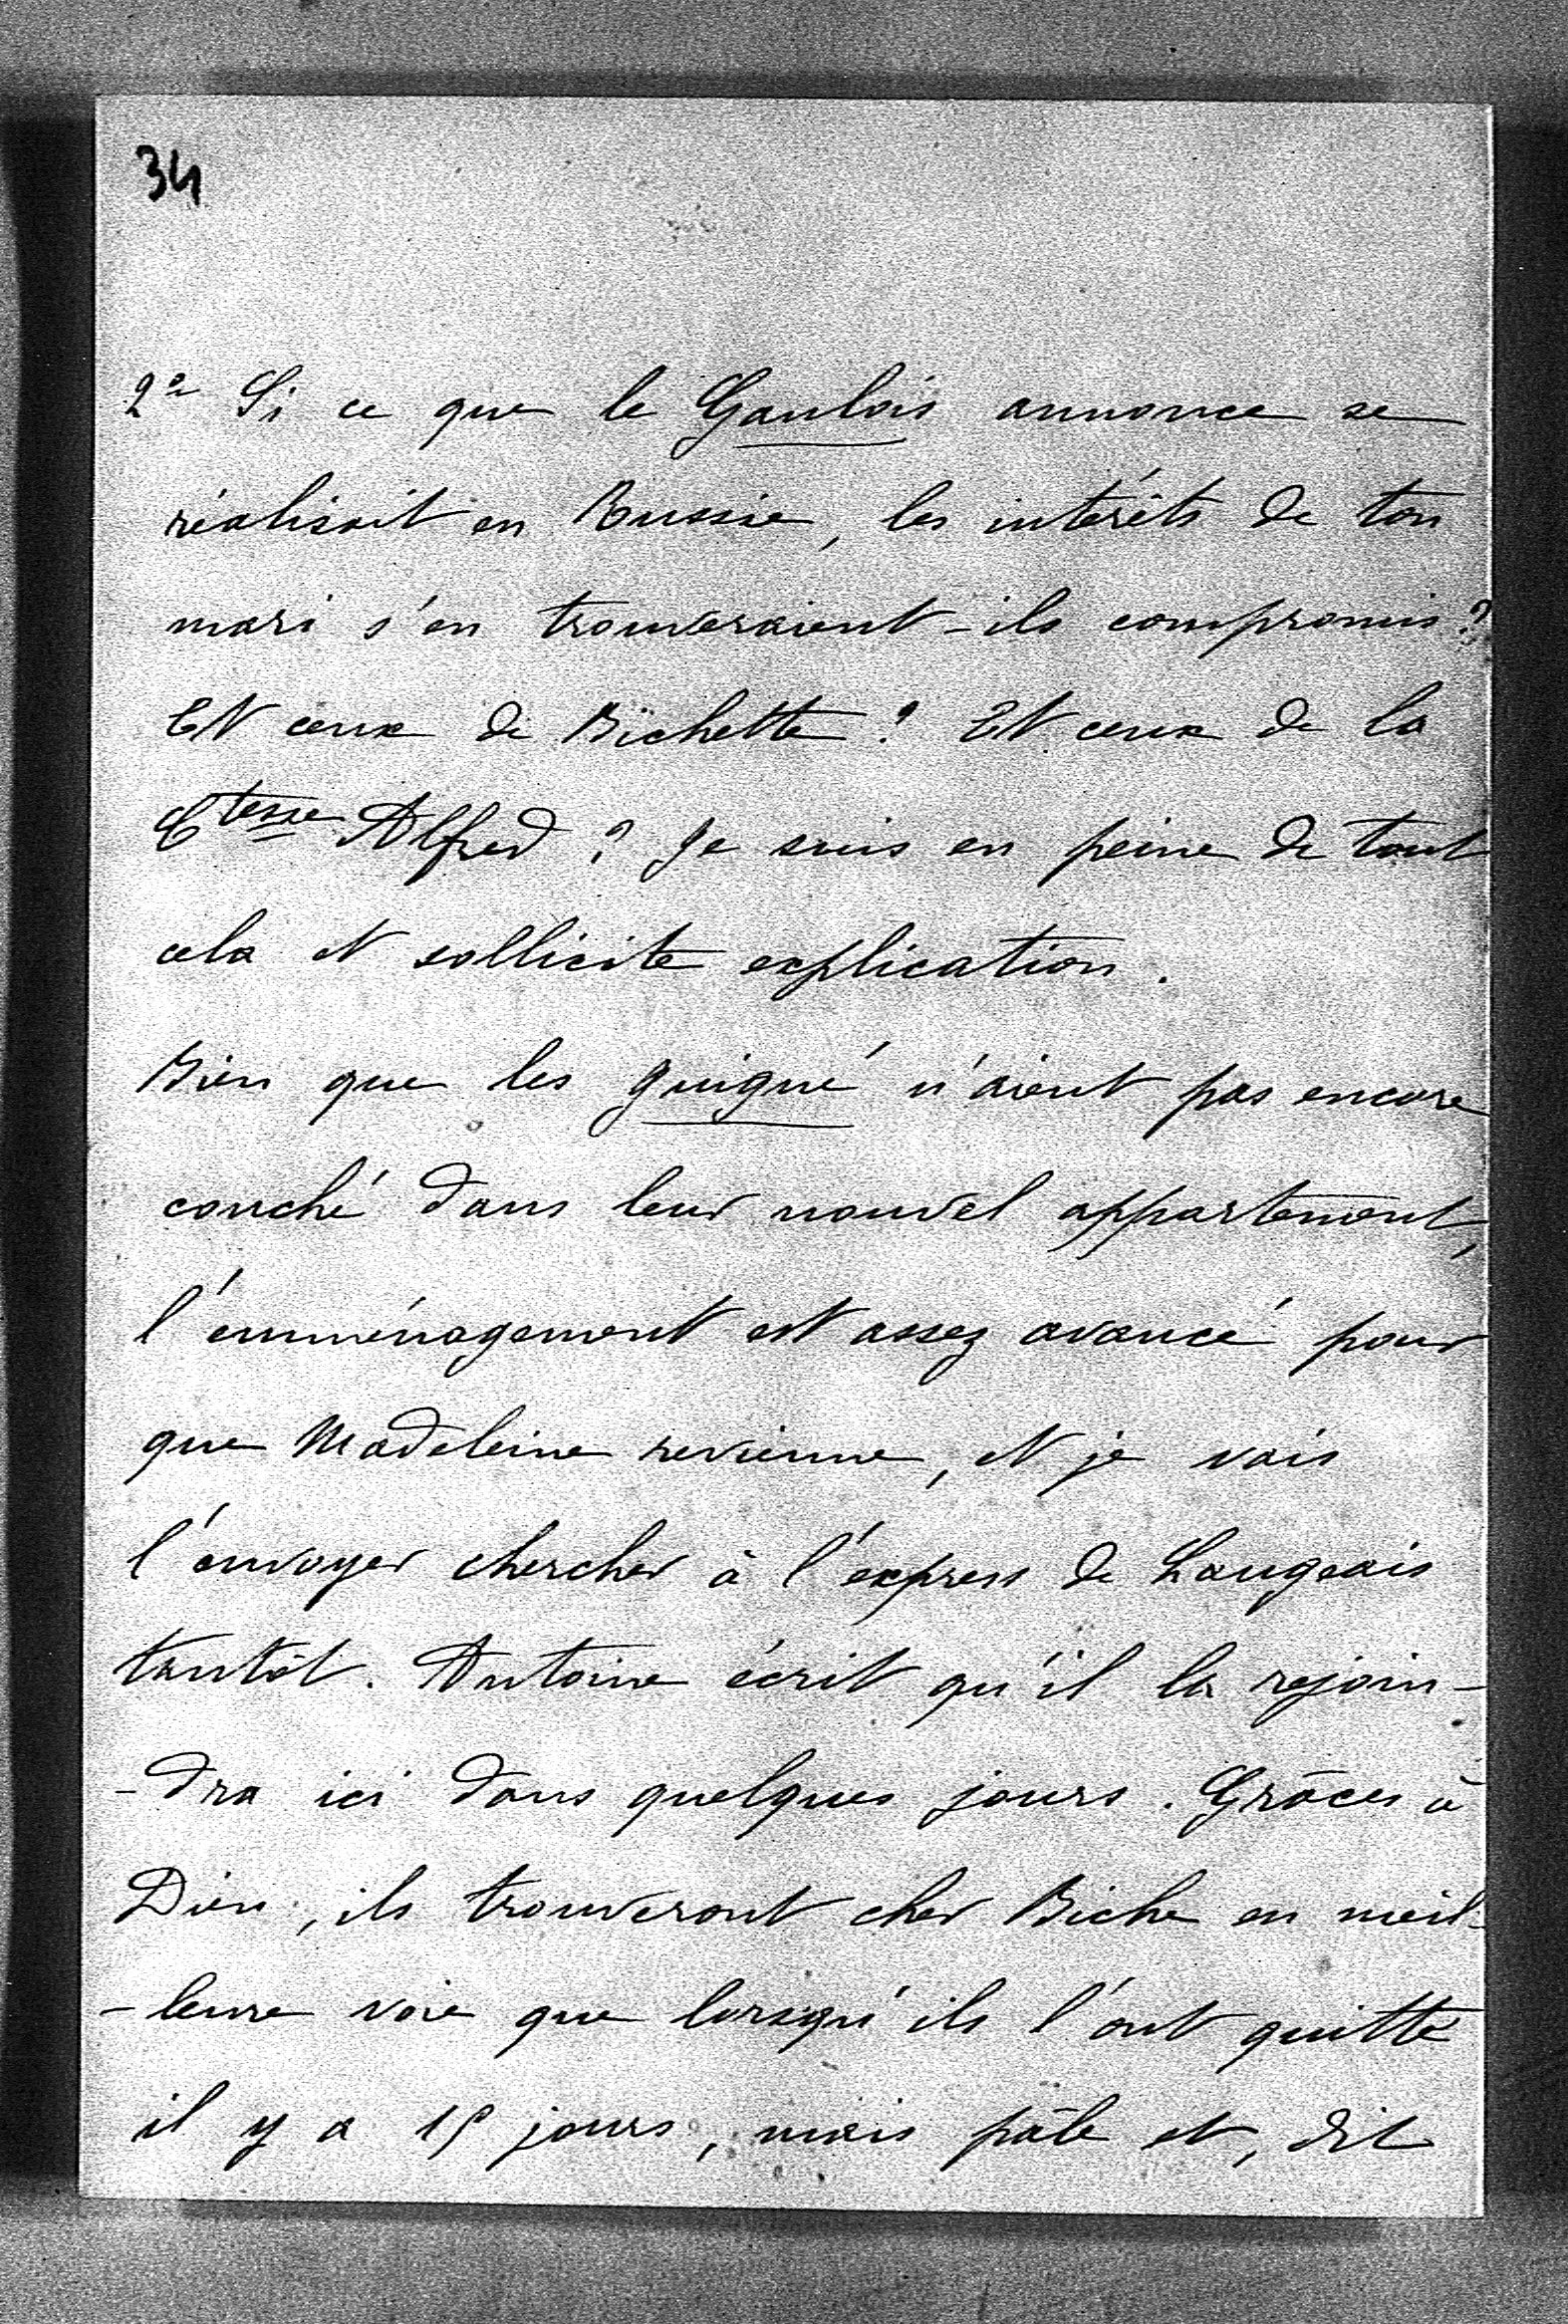 34
2º Si ce que le Gaulois annonce se
réalisait en Russie, les intérêts de ton
mari s'en trouveraient-ils compromis ?
Et ceux de Bichette ? Et ceux de la
Ctesse Alfred ? Je suis en peine de tout
cela et sollicite explication.
Bien que les guigné n'aient pas encore
couché dans leur nouvel appartement,
l'emménagement est assez avancé pour
que Madeleine revienne, et je vais
l'envoyer chercher à l'express de Langeais
tantôt. Antoine écrit qu'il la rejoin-
-dra ici dans quelques jours. Grâces à
Dieu, ils trouveront cher Biche en meil-
-leure voie que lorsqu'ils l'ont quitté
il y a 15 jours, mais pâle et, dit